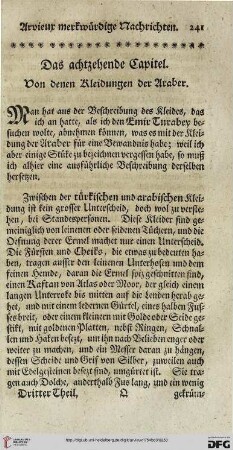 Arvieux merkwürdige Nachrichten. 241
Das achtzehende Capitel.
Von denen Kleidungen der Araber.
Man hat aus der Beschreibung des Kleides, das
ich an hatte, als ich den Emir Turabey be-
suchen wolte, abnehmen können, was es mit der Klei-
dung der Araber für eine Bewandnis habe; weil ich
aber einige Stüke zu bezeichnen vergessen habe, so muß
ich alhier eine ausführliche Beschreibung derselben
hersetzen.
Zwischen der türkischen und arabischen Klei-
dung ist kein grosser Unterscheid, doch wol zu verste-
hen, bei Standespersonen. Diese Kleider sind ge-
meiniglich von leinenen oder seidenen Tüchern, und die
Oefnung derer Ermel machet nur einen Unterscheid.
Die Fürsten und Cheiks, die etwas zu bedeuten ha-
ben, tragen ausser den leinenen Unterhosen und dem
feinen Hemde, daran die Ermel spiz geschnitten sind,
einen Kaftan von Atlas oder Moor, der gleich einem
langen Unterkleide bis mitten auf die Lenden herab ge-
het, und mit einem ledernen Gürtel, eines halben Fus-
ses breit, oder einem kleinern mit Golde oder Seide ge-
stikt, mit goldenen Platten, nebst Ringen, Schnal-
len und Haken besezt, um ihn nach Belieben enger oder
weiter zu machen, und ein Messer daran zu hängen,
dessen Heft und Scheide von Silber, zuweilen
auch mit Edelgesteinen besezt sind, umgürtet ist. Sie tra-
gen auch Dolche, anderthalb Fus lang, und ein wenig
Dritter Theil. Q gekrüm-